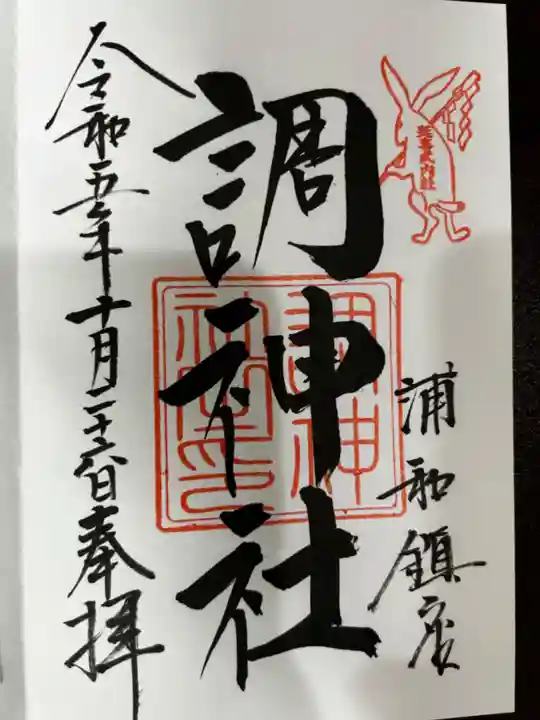 延喜式内社
浦和鎮座
調神社
令和五年十月二十六日奉拝